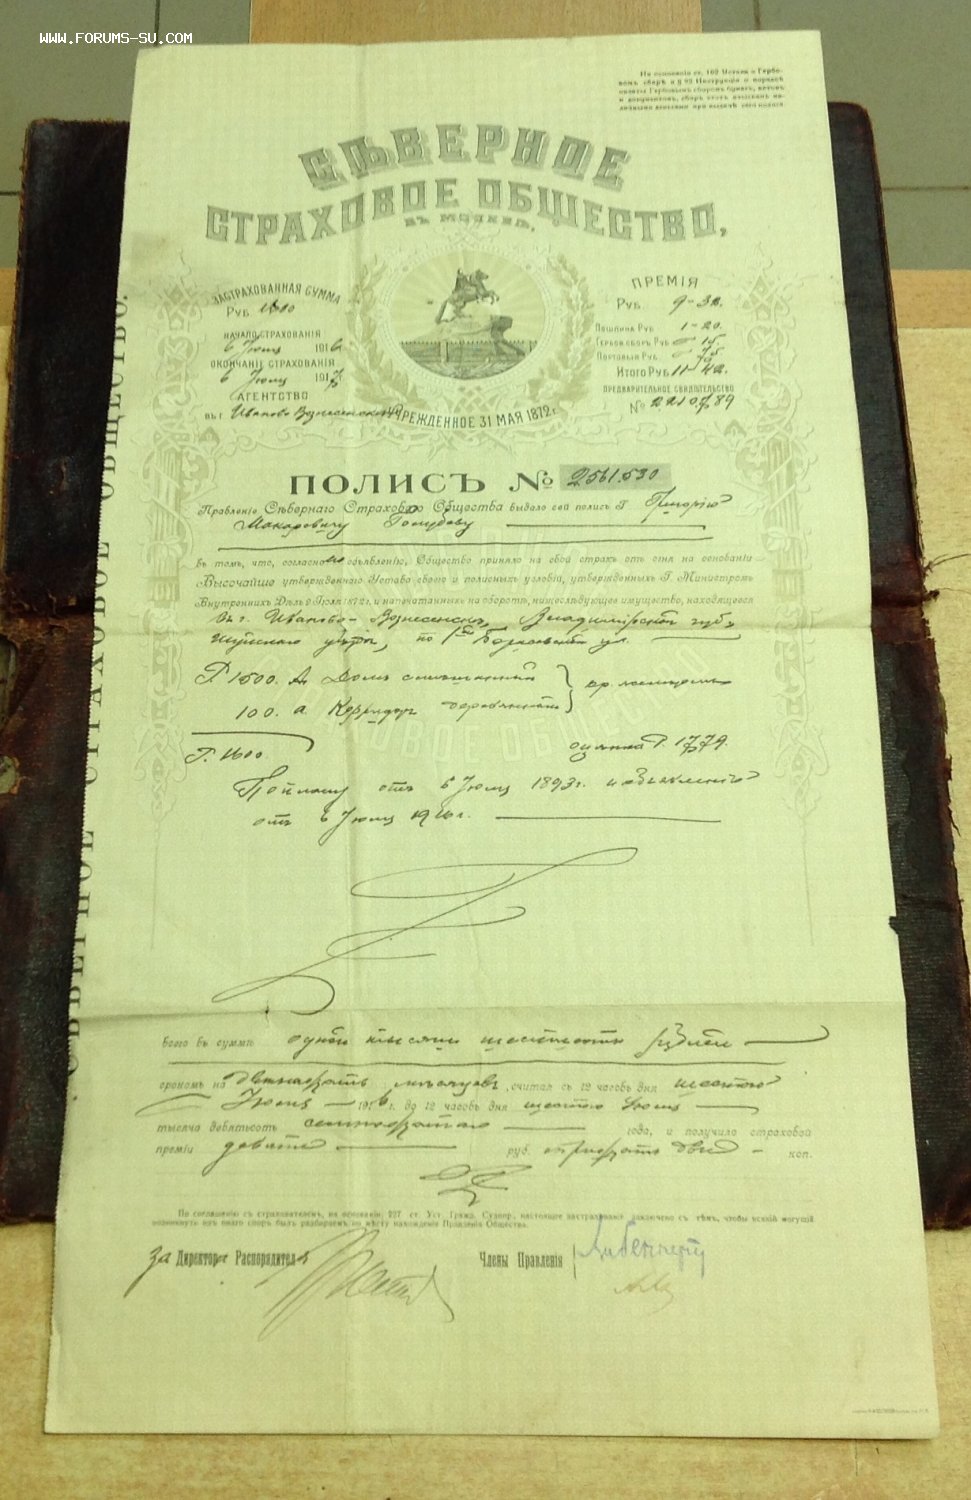 WWW.FORUMS-SU.COM
На основаніи ст. 162 Устава о Гербо-
вомъ сборѣ и § 93 Инструкціи о порядкѣ
оплаты Гербовымъ сборомъ бумагъ, актовъ
и документовъ, сборъ этотъ взысканъ на-
личными деньгами при выдачѣ сего полиса
СѢВЕРНОЕ
СТРАХОВОЕ ОБЩЕСТВО,
ВЪ МОСКВѢ,
ЗАСТРАХОВАННАЯ СУММА
РУБ 1600
НАЧАЛО СТРАХОВАНІЯ
6 Іюня 1916
ОКОНЧАНІЕ СТРАХОВАНІЯ
6 Іюня 1917
АГЕНТСТВО
ВЪ Г. Иваново Вознесенскъ
ПРЕМІЯ
РУБ. 9-32
ПОШЛИНА РУБ 1-20
ГЕРБОВ.СБОРЪ РУБ 15
ПОЧТОВЫЯ РУБ. 75
ИТОГО РУБ 11-42.
ПРЕДВАРИТЕЛЬНОЕ СВИДѢТЕЛЬСТВО
№ 2210789
УЧРЕЖДЕННОЕ 31 МАЯ 1872 г.
ПОЛИСЪ № 2561.530
Правленіе Сѣвернаго Страхового Общества выдало сей полисъ Г Григорію
Макаровичу Голубеву
въ томъ, что, согласно его объявленію, Общество приняло на свой страхъ отъ огня на основаніи
Высочайше утвержденнаго Устава своего и полисныхъ условій, утвержденныхъ Г. Министромъ
Внутреннихъ Дѣлъ 2 Іюля 1872 г. и напечатанныхъ на оборотѣ, нижеслѣдующее имущество, находящееся
въ г. Иваново-Вознесенскѣ, Владимірской губ.
Шуйскаго уѣзда, по ул.
Р. 1500. А. Домъ смѣшанный
100. а Корридоръ деревянный
Р. 1600
оцѣнка Р. 1779.
По плану отъ 6 Іюня 1893 г. и объявленію
отъ 6 Іюня 1916 г.
всего въ суммѣ одной тысячи шестисотъ рублей
срокомъ на двѣнадцать мѣсяцевъ, считая съ 12 часовъ дня шестого
Іюня 1916 г. до 12 часовъ дня шестого Іюня
тысяча девятьсотъ семнадцатаго года, и получило страховой
преміи девять руб. тридцать двѣ коп.
По соглашенію съ страхователемъ, на основаніи 227 ст. Уст. Гражд. Судопр., настоящее застрахованіе заключено съ тѣмъ, чтобы всякій могущій
возникнуть изъ онаго споръ былъ разбираемъ по мѣсту нахожденія Правленія Общества.
за Директора Распорядителя
Члены Правленія
СѢВЕРНОЕ СТРАХОВОЕ ОБЩЕСТВО.